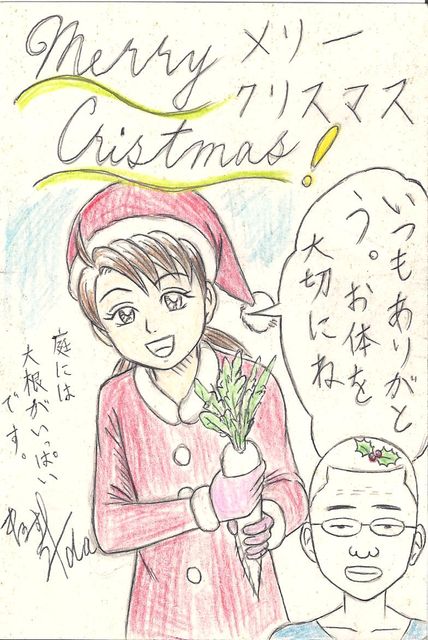 Merry
Cristmas!
メリー
クリスマス
いつもありがと
う。お体を
大切にね
庭には
大根がいっぱい
です。